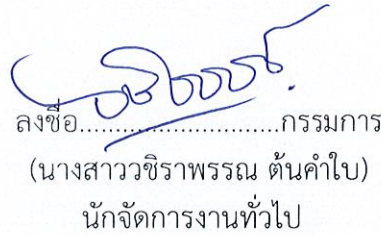 ลงชื่อ............................กรรมการ
(นางสาววชิราพรรณ ต้นคำใบ)
นักจัดการงานทั่วไป